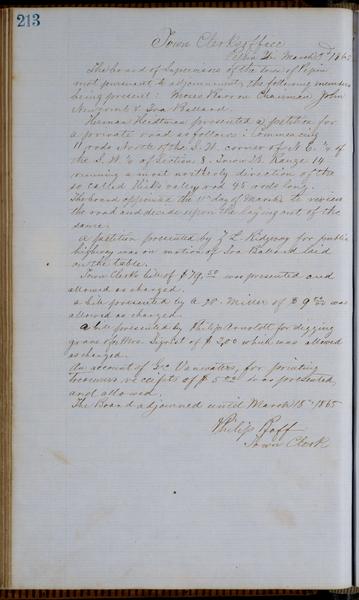 213
Town Clerks office
Pepin Wis March 1865
The board of Supervisors of the town of Pepin
met pursuant to adjournment, the following members
being present: Moses Barron Chairman, John
Newcomb & Ira Ballard.
Herman Heidtman presented a petition for
a private road as follows: Commencing
11 rods North of the S. W. corner of N. E. ¼ of
the S. W. ¼ of Section 8. Town Range 14
running a most northerly direction of the
so called Hicks valley road 45 rods long.
The board appointed the 11th day of March to review
the road and decide upon the laying out of the
same.
A petition presented by Z L. Ridgway for public
highway was on motion of Ira Ballard laid
on the table.
Town Clerks bill of $79. was presented and
allowed as charged.
a bill presented by A Miller of $9 was
allowed as charged.
a bill presented by Philip Arnoldt for digging
grave for Mrs. of $2,00 which was allowed
as charged.
An account of Geo Vanwaters, for printing
receipts of $5 was presented
and allowed.
The Board adjourned until March 15th 1865
Philip Roff
Town Clerk